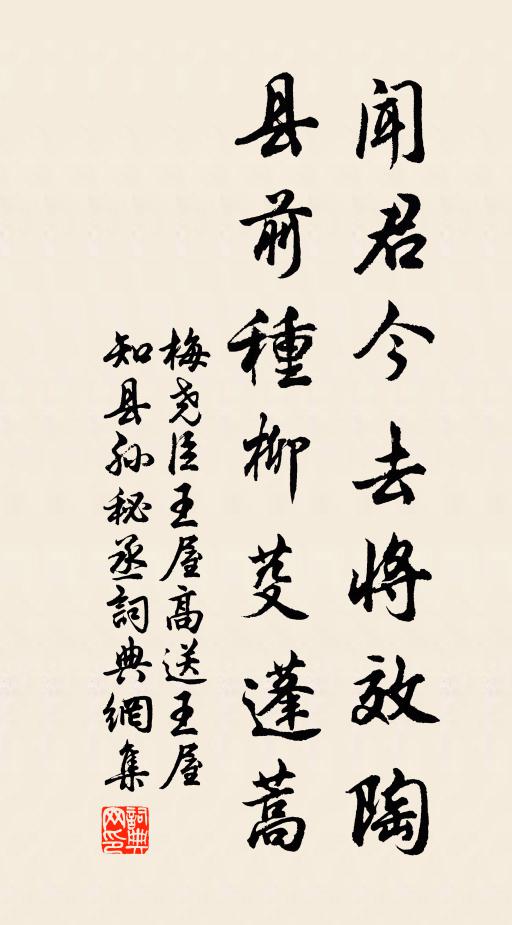 闻君今去将效陶
县前種柳芟蓬蒿
梅尧臣王屋高送王屋
知县孙秘丞詞典網集
詞典
网印